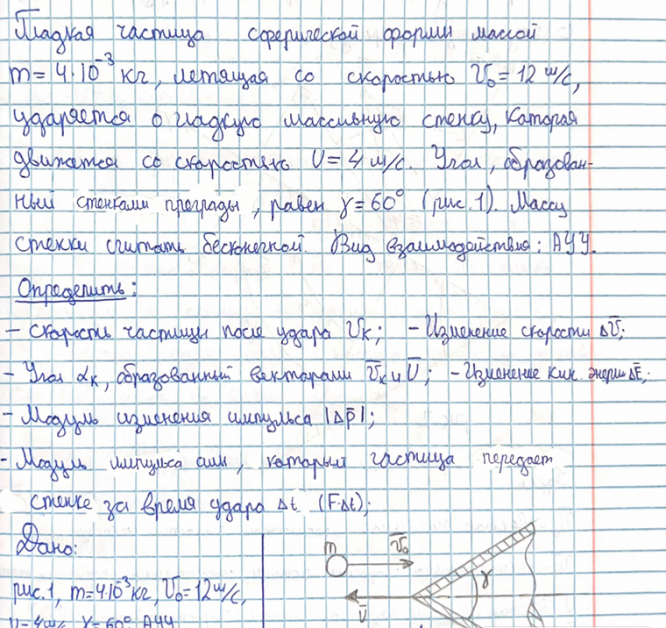 Гладкая частица сферической формы массой
m = 4·10⁻³ кг, летящая со скоростью V₀ = 12 м/с,
ударяется о гладкую массивную стенку, которая
движется со скоростью U = 4 м/с. Угол, образован-
ный стенками преграды, равен γ = 60° (рис. 1). Массу
стенки считать бесконечной. Вид взаимодействия: АУУ.
Определить:
– Скорости частицы после удара Vₖ; – Изменение скорости ΔV̄;
– Угол αₖ, образованный векторами V̄ₖ и Ū; – Изменение кин. энергии ΔĒ;
– Модуль изменения импульса |Δp̄|;
– Модуль импульса силы, который частица передает
стенке за время удара Δt (F·Δt);
Дано:
m V̄₀
γ
Ū
рис. 1, m = 4·10⁻³ кг, V₀ = 12 м/с,
U = 4 м/с, γ = 60°, АУУ